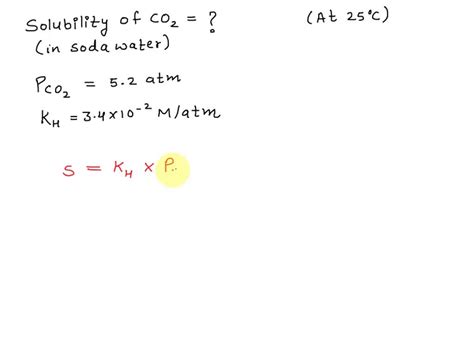 Solubility of CO₂ = ? (At 25°C)
(in soda water)
P_CO₂ = 5.2 atm
K_H = 3.4×10⁻² M/atm
S = K_H × P